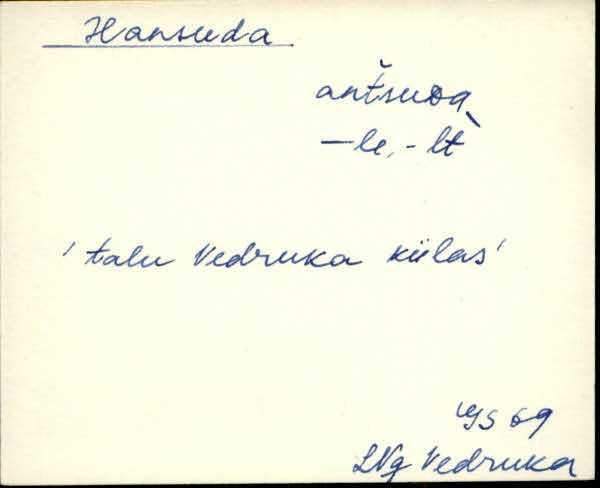 Hansuda
antšuda
-le, -lt
'talu Vedruka külas'
69
LNg Vedruka